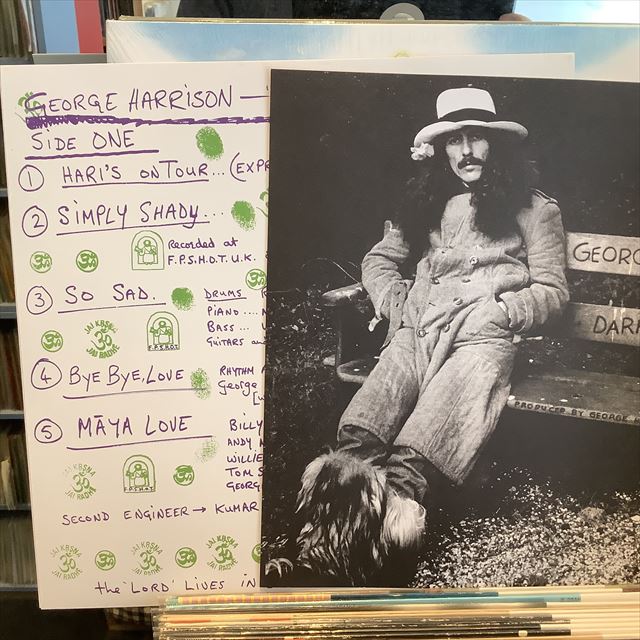 GEORGE HARRISON —
SIDE ONE
① HARI'S ON TOUR... (EXPR
② SIMPLY SHADY...
Recorded at
F.P.S.H.O.T. U.K.
③ SO SAD.
DRUMS
PIANO....
BASS...
GUITARS
JAI KRSNA
ॐ
JAI RADHE
F.P.S.H.O.T.
④ BYE BYE, LOVE
RHYTHM
George
⑤ MĀYA LOVE
BILLY
ANDY
WILLIE
TOM S
GEORG
JAI KRSNA
ॐ
JAI RADHE
F.P.S.H.O.T.
SECOND ENGINEER → KUMAR
JAI KRSNA
ॐ
JAI RADHE
JAI KRSNA
ॐ
JAI RADHE
JAI KRSNA
ॐ
JAI RADHE
the 'LORD' LIVES IN
GEORG
DAR
PRODUCED BY GEORGE H